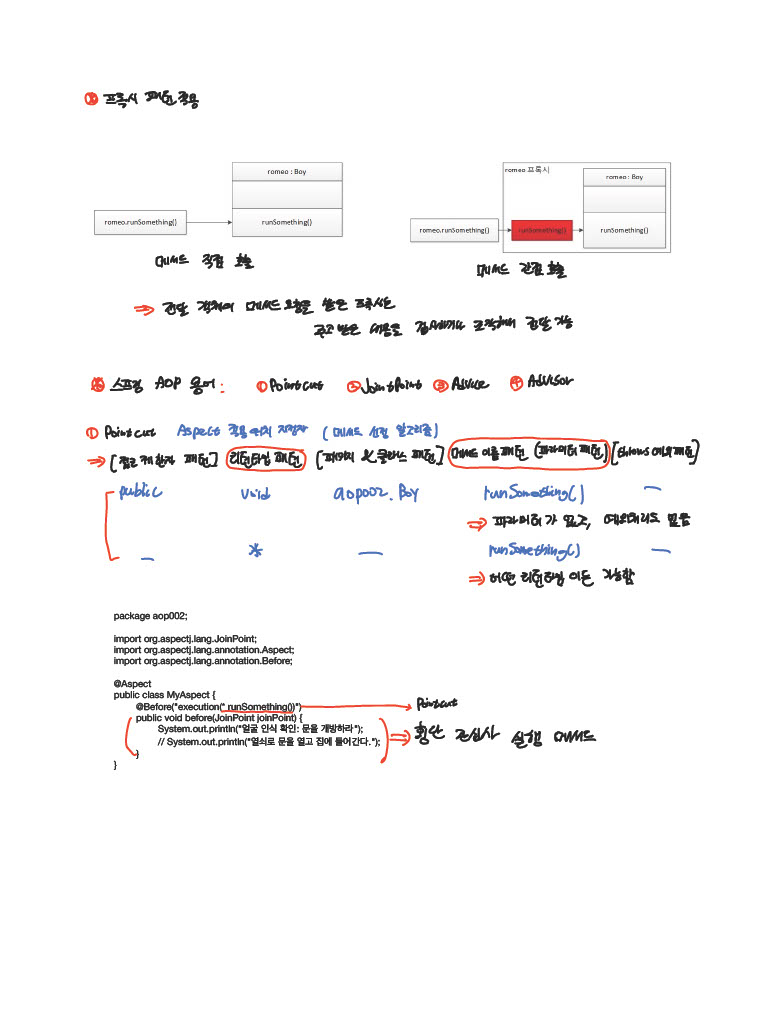 ※ 프록시 패턴 적용
romeo : Boy
romeo.runSomething()
runSomething()
메서드 직접 호출
romeo 프록시
romeo : Boy
romeo.runSomething()
runSomething()
runSomething()
메서드 간접 호출
⇒ 전달 객체의 메서드 호출을 받은 프록시는
주고 받은 내용을 조작해서 전달 가능
※ 스프링 AOP 용어 : ① Pointcut ② JointPoint ③ Advice ④ Advisor
① Pointcut Aspect 적용 위치 지정자 ( 메서드 선정 알고리즘 )
⇒ [접근제한자 패턴] 리턴타입 패턴 [패키지 & 클래스 패턴] 메서드 이름패턴 (파라미터 패턴) [throws 예외패턴]
public void aop002.Boy runSomething() —
⇒ 파라미터가 없고, 예외처리도 없음
— * — runSomething() —
⇒ 어떤 리턴타입 이든 가능함
package aop002;
import org.aspectj.lang.JoinPoint;
import org.aspectj.lang.annotation.Aspect;
import org.aspectj.lang.annotation.Before;
@Aspect
public class MyAspect {
@Before("execution(* runSomething())") → Pointcut
public void before(JoinPoint joinPoint) {
System.out.println("얼굴 인식 확인: 문을 개방하라");
// System.out.println("열쇠로 문을 열고 집에 들어간다.");
}
}
⇒ 횡단 관심사 실행 메서드